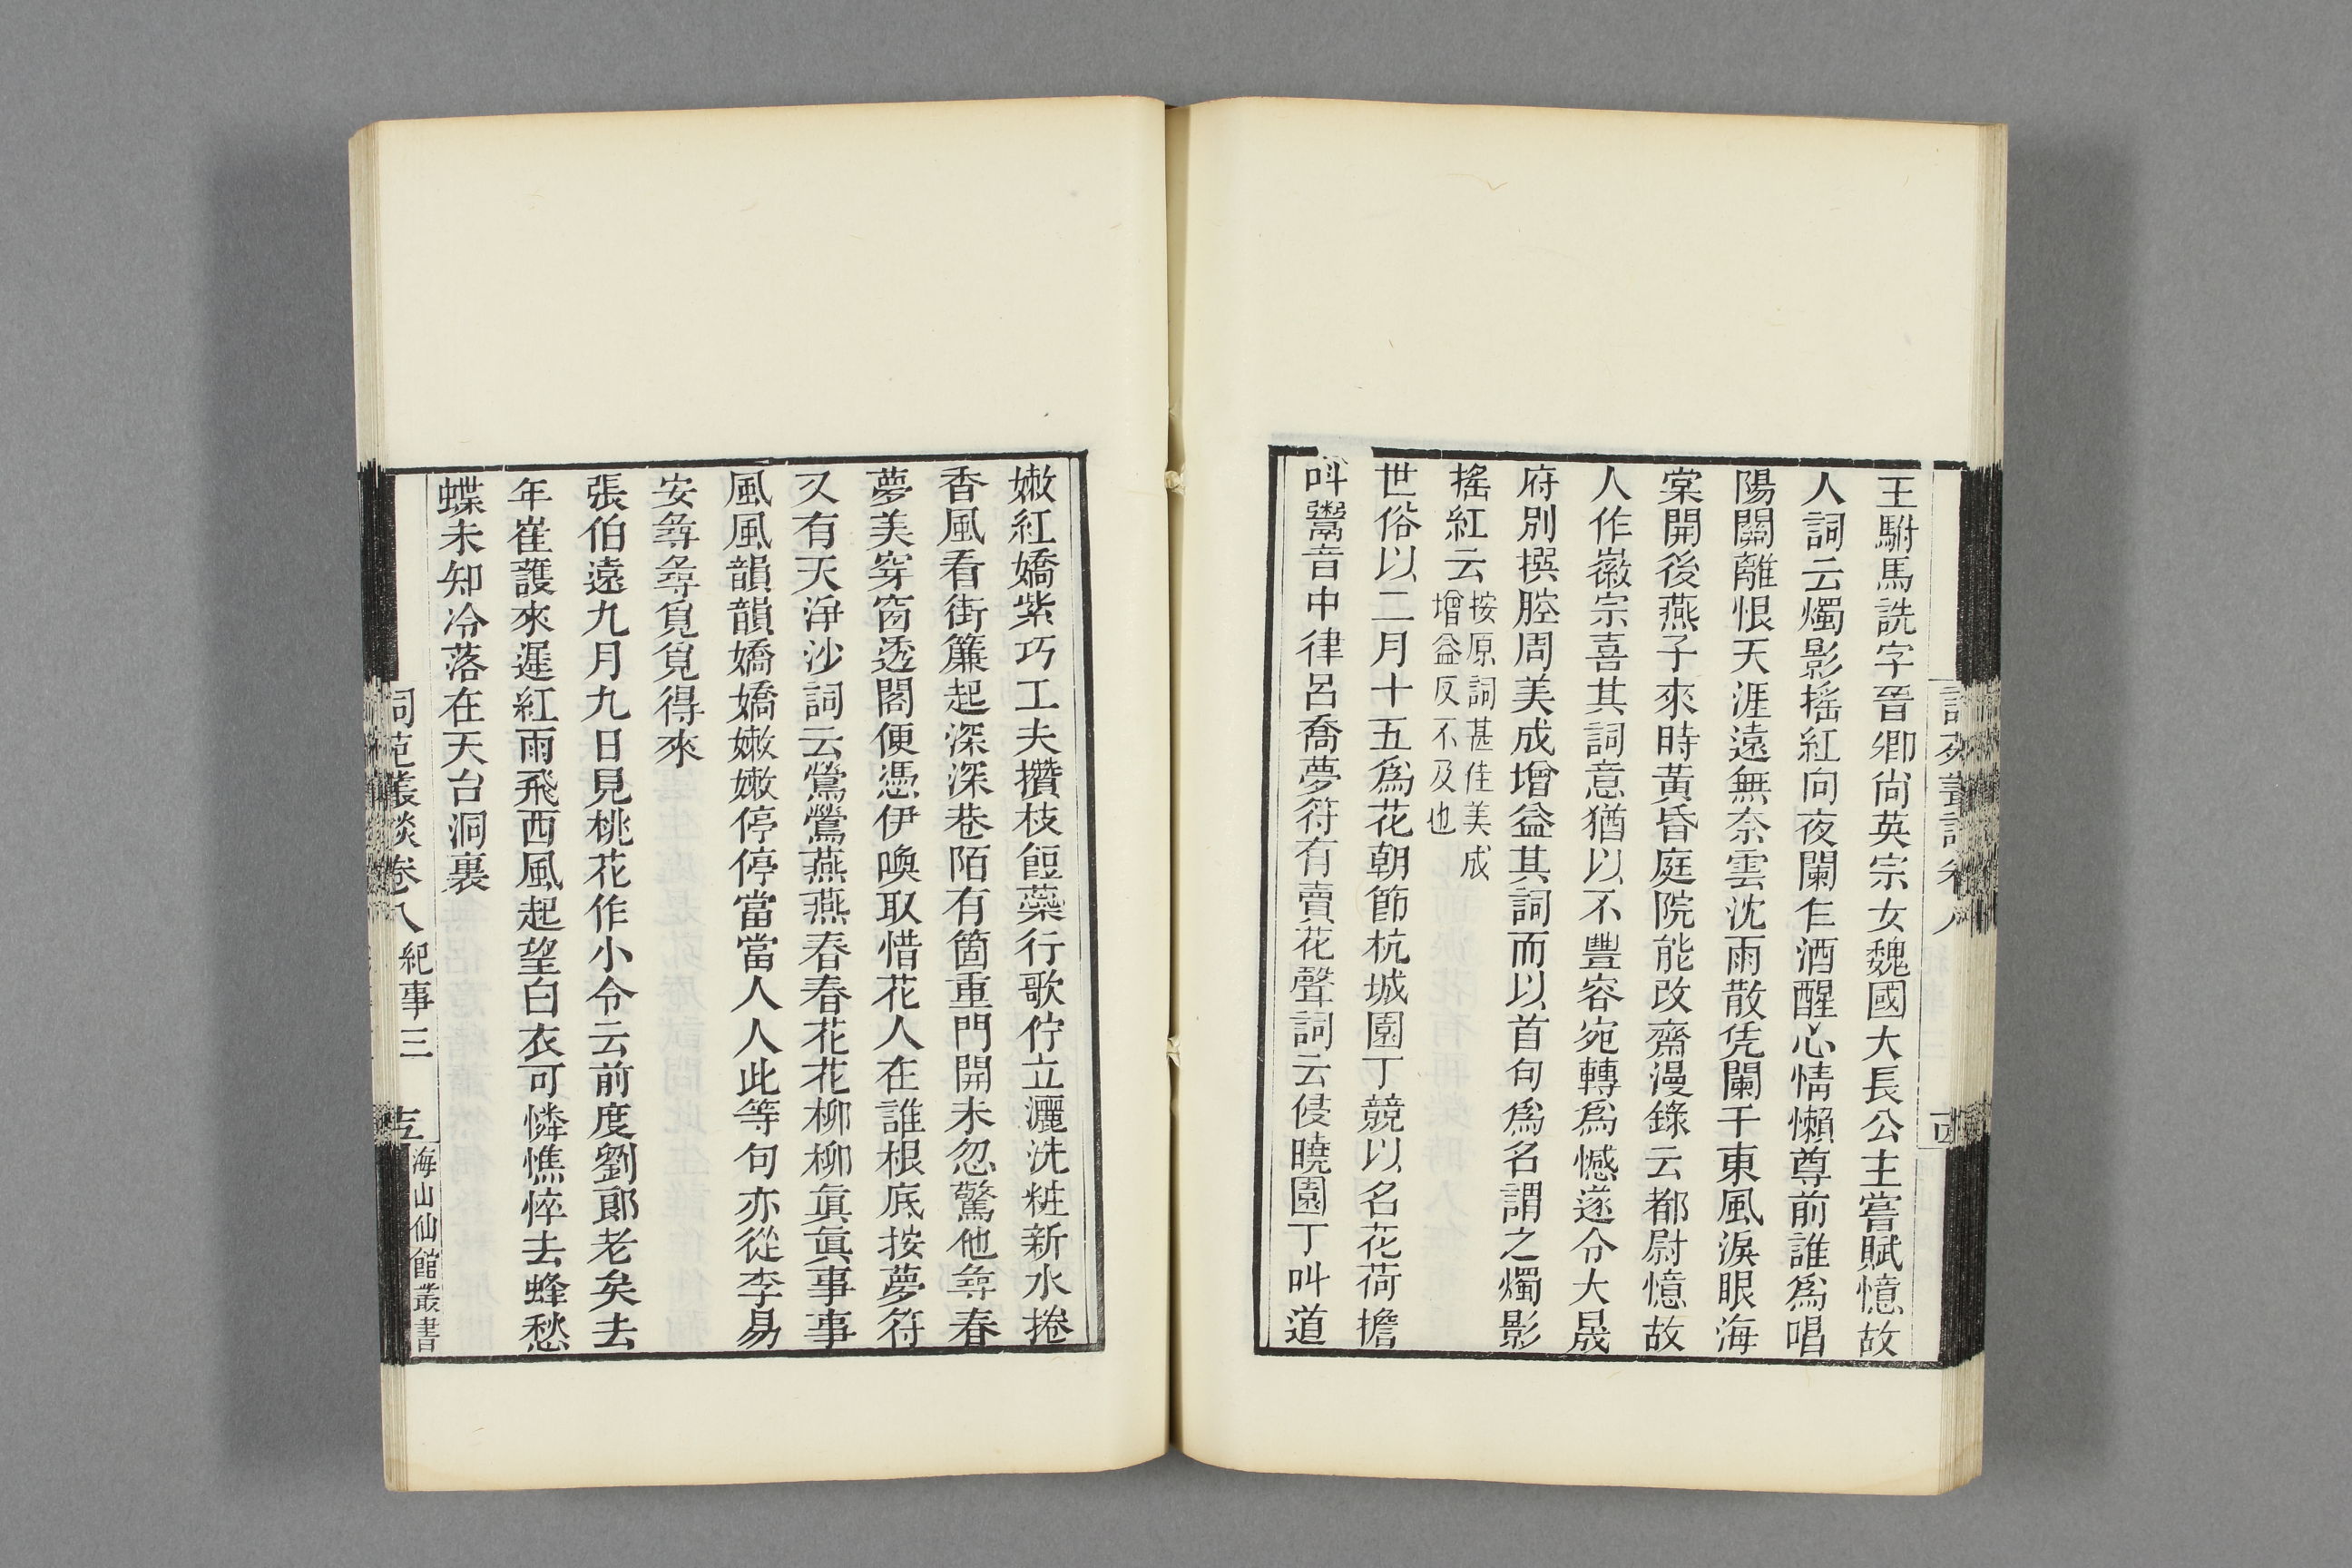 王駙馬詵字晉卿尙英宗女魏國大長公主嘗賦憶故
人詞云燭影搖紅向夜闌乍酒醒心情懶尊前誰爲唱
陽關離恨天涯遠無奈雲沈雨散凭闌干東風淚眼海
棠開後燕子來時黃昏庭院能改齋漫錄云都尉憶故
人作徽宗喜其詞意猶以不豐容宛轉爲憾遂令大晟
府別撰腔周美成增益其詞而以首句爲名謂之燭影
搖紅云按原詞甚佳美成增益反不及也
世俗以二月十五爲花朝節杭城園丁競以名花荷擔
叫鬻音中律呂喬夢符有賣花聲詞云侵曉園丁叫道
嫩紅嬌紫巧工夫攢枝餖蘂行歌佇立灑洗粧新水捲
香風看街簾起深深巷陌有箇重門開未忽驚他尋春
夢美穿窗透閣便憑伊喚取惜花人在誰根底按夢符
又有天淨沙詞云鶯鶯燕燕春春花花柳柳眞眞事事
風風韻韻嬌嬌嫩嫩停停當當人人此等句亦從李易
安尋尋覓覓得來
張伯遠九月九日見桃花作小令云前度劉郞老矣去
年崔護來遲紅雨飛西風起望白衣可憐憔悴去蜂愁
蝶未知冷落在天台洞裏
詞苑叢談卷八 紀事三
海山仙館叢書